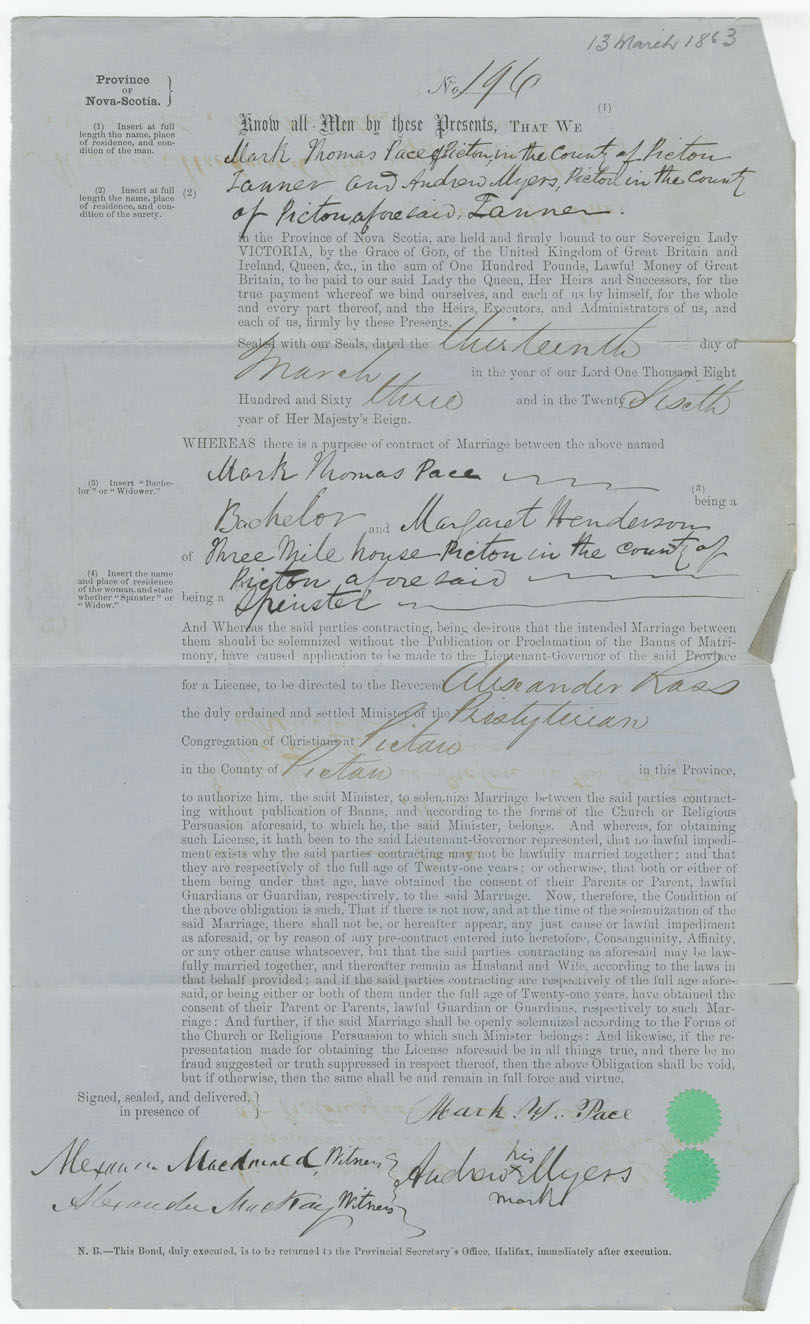 13 March 1863
Province
OF
Nova-Scotia.
No 196
(1)
(1) Insert at full
length the name, place
of residence, and con-
dition of the man.
Know all Men by these Presents, THAT WE
Mark Thomas Pace of Picton, in the County of Picton
(2) Insert at full
length the name, place
of residence, and con-
dition of the surety.
(2)
Tanner and Andrew Myers, Picton in the County
of Picton aforesaid, Tanner.
In the Province of Nova Scotia, are held and firmly bound to our Sovereign Lady
VICTORIA, by the Grace of GOD, of the United Kingdom of Great Britain and
Ireland, Queen, &c., in the sum of One Hundred Pounds, Lawful Money of Great
Britain, to be paid to our said Lady the Queen, Her Heirs and Successors, for the
true payment whereof we bind ourselves, and each of us by himself, for the whole
and every part thereof, and the Heirs, Executors, and Administrators of us, and
each of us, firmly by these Presents.
Sealed with our Seals, dated the thirteenth day of
March in the year of our Lord One Thousand Eight
Hundred and Sixty three and in the Twenty Sixth
year of Her Majesty's Reign.
WHEREAS there is a purpose of contract of Marriage between the above named
Mark Thomas Pace
(3) Insert "Bache-
lor" or "Widower."
(3)
being a
Bachelor and Margaret Henderson
of Three Mile house Picton in the County of
Picton aforesaid
(4) Insert the name
and place of residence
of the woman, and state
whether "Spinster" or
"Widow."
being a Spinster
And Whereas the said parties contracting, being desirous that the intended Marriage between
them should be solemnized without the Publication or Proclamation of the Banns of Matri-
mony, have caused application to be made to the Lieutenant-Governor of the said Province
for a License, to be directed to the Reverend Alexander Ross
the duly ordained and settled Minister of the Presbyterian
Congregation of Christians at Pictou
in the County of Pictou in this Province,
to authorize him, the said Minister, to solemnize Marriage between the said parties contract-
ing without publication of Banns, and according to the forms of the Church or Religious
Persuasion aforesaid, to which he, the said Minister, belongs. And whereas, for obtaining
such License, it hath been to the said Lieutenant-Governor represented, that no lawful impedi-
ment exists why the said parties contracting may not be lawfully married together; and that
they are respectively of the full age of Twenty-one years; or otherwise, that both or either of
them being under that age, have obtained the consent of their Parents or Parent, lawful
Guardians or Guardian, respectively, to the said Marriage. Now, therefore, the Condition of
the above obligation is such, That if there is not now, and at the time of the solemnization of the
said Marriage, there shall not be, or hereafter appear, any just cause or lawful impediment
as aforesaid, or by reason of any pre-contract entered into heretofore, Consanguinity, Affinity,
or any other cause whatsoever, but that the said parties contracting as aforesaid may be law-
fully married together, and thereafter remain as Husband and Wife, according to the laws in
that behalf provided; and if the said parties contracting are respectively of the full age afore-
said, or being either or both of them under the full age of Twenty-one years, have obtained the
consent of their Parent or Parents, lawful Guardian or Guardians, respectively to such Mar-
riage: And further, if the said Marriage shall be openly solemnized according to the Forms of
the Church or Religious Persuasion to which such Minister belongs: And likewise, if the re-
presentation made for obtaining the License aforesaid be in all things true, and there be no
fraud suggested or truth suppressed in respect thereof, then the above Obligation shall be void,
but if otherwise, then the same shall be and remain in full force and virtue.
Signed, sealed, and delivered,
in presence of
Mark Pace
Macdonald, Witness
Andrew his x Myers
mark
Alexander MacKay Witness
N. B.—This Bond, duly executed, is to be returned to the Provincial Secretary's Office, Halifax, immediately after execution.